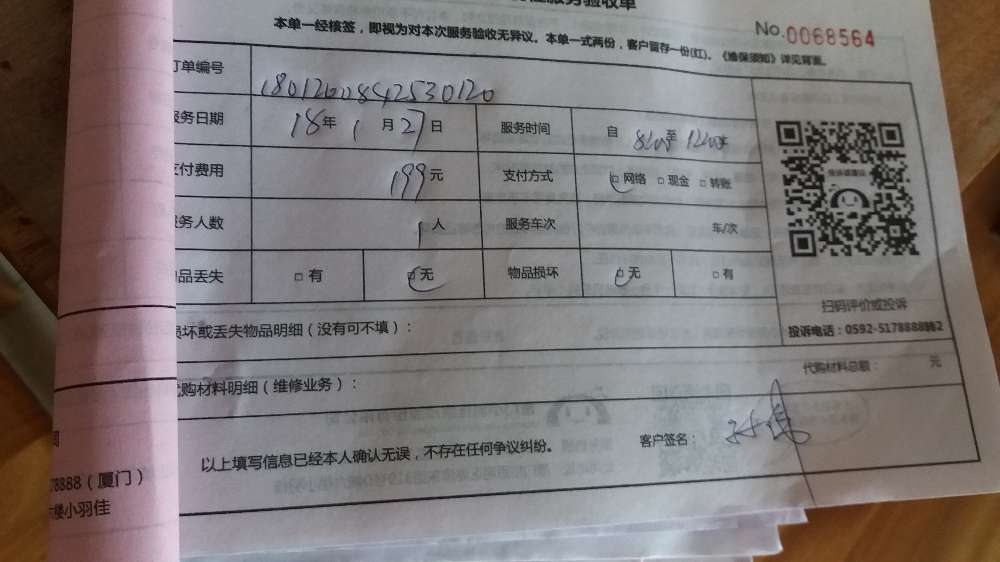 服务验收单
本单一经核签，即视为对本次服务验收无异议。本单一式两份，客户留存一份(红)。《维保须知》详见背面。
No.0068564
订单编号 1801260842530120
服务日期 18年1月27日 服务时间 自8:00至12:00
支付费用 199元 支付方式 □网络 □现金 □转账
服务人数 1人 服务车次 车/次
物品丢失 □有 □无 物品损坏 □无 □有
扫码评价或投诉
投诉电话：0592-5178888转2
损坏或丢失物品明细（没有可不填）：
代购材料明细（维修业务）：
代购材料总额： 元
以上填写信息已经本人确认无误，不存在任何争议纠纷。
客户签名：
78888（厦门）
楼小羽佳